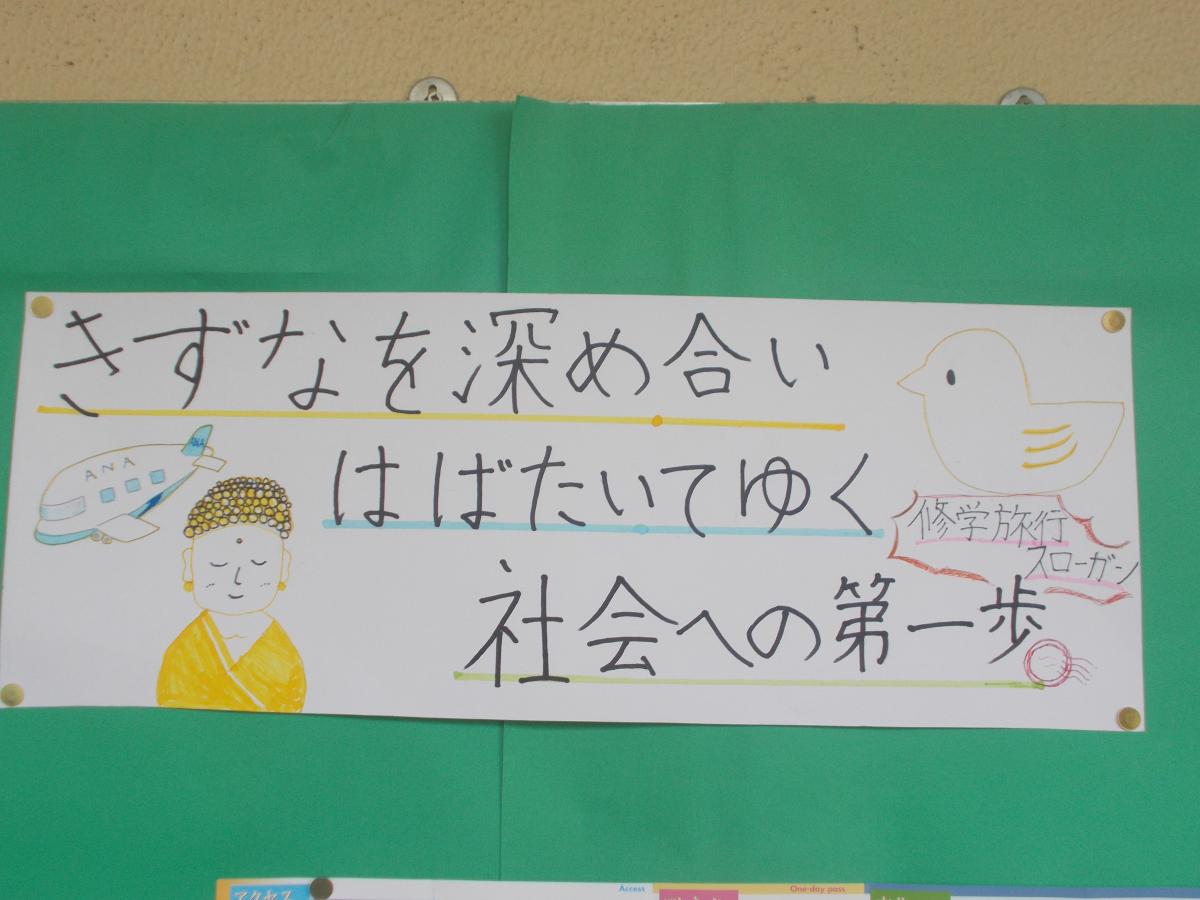 きずなを深め合い
ANA
ANA
はばたいてゆく
修学旅行
スローガン
社会への第一歩
アクセス
Access
One-day pass